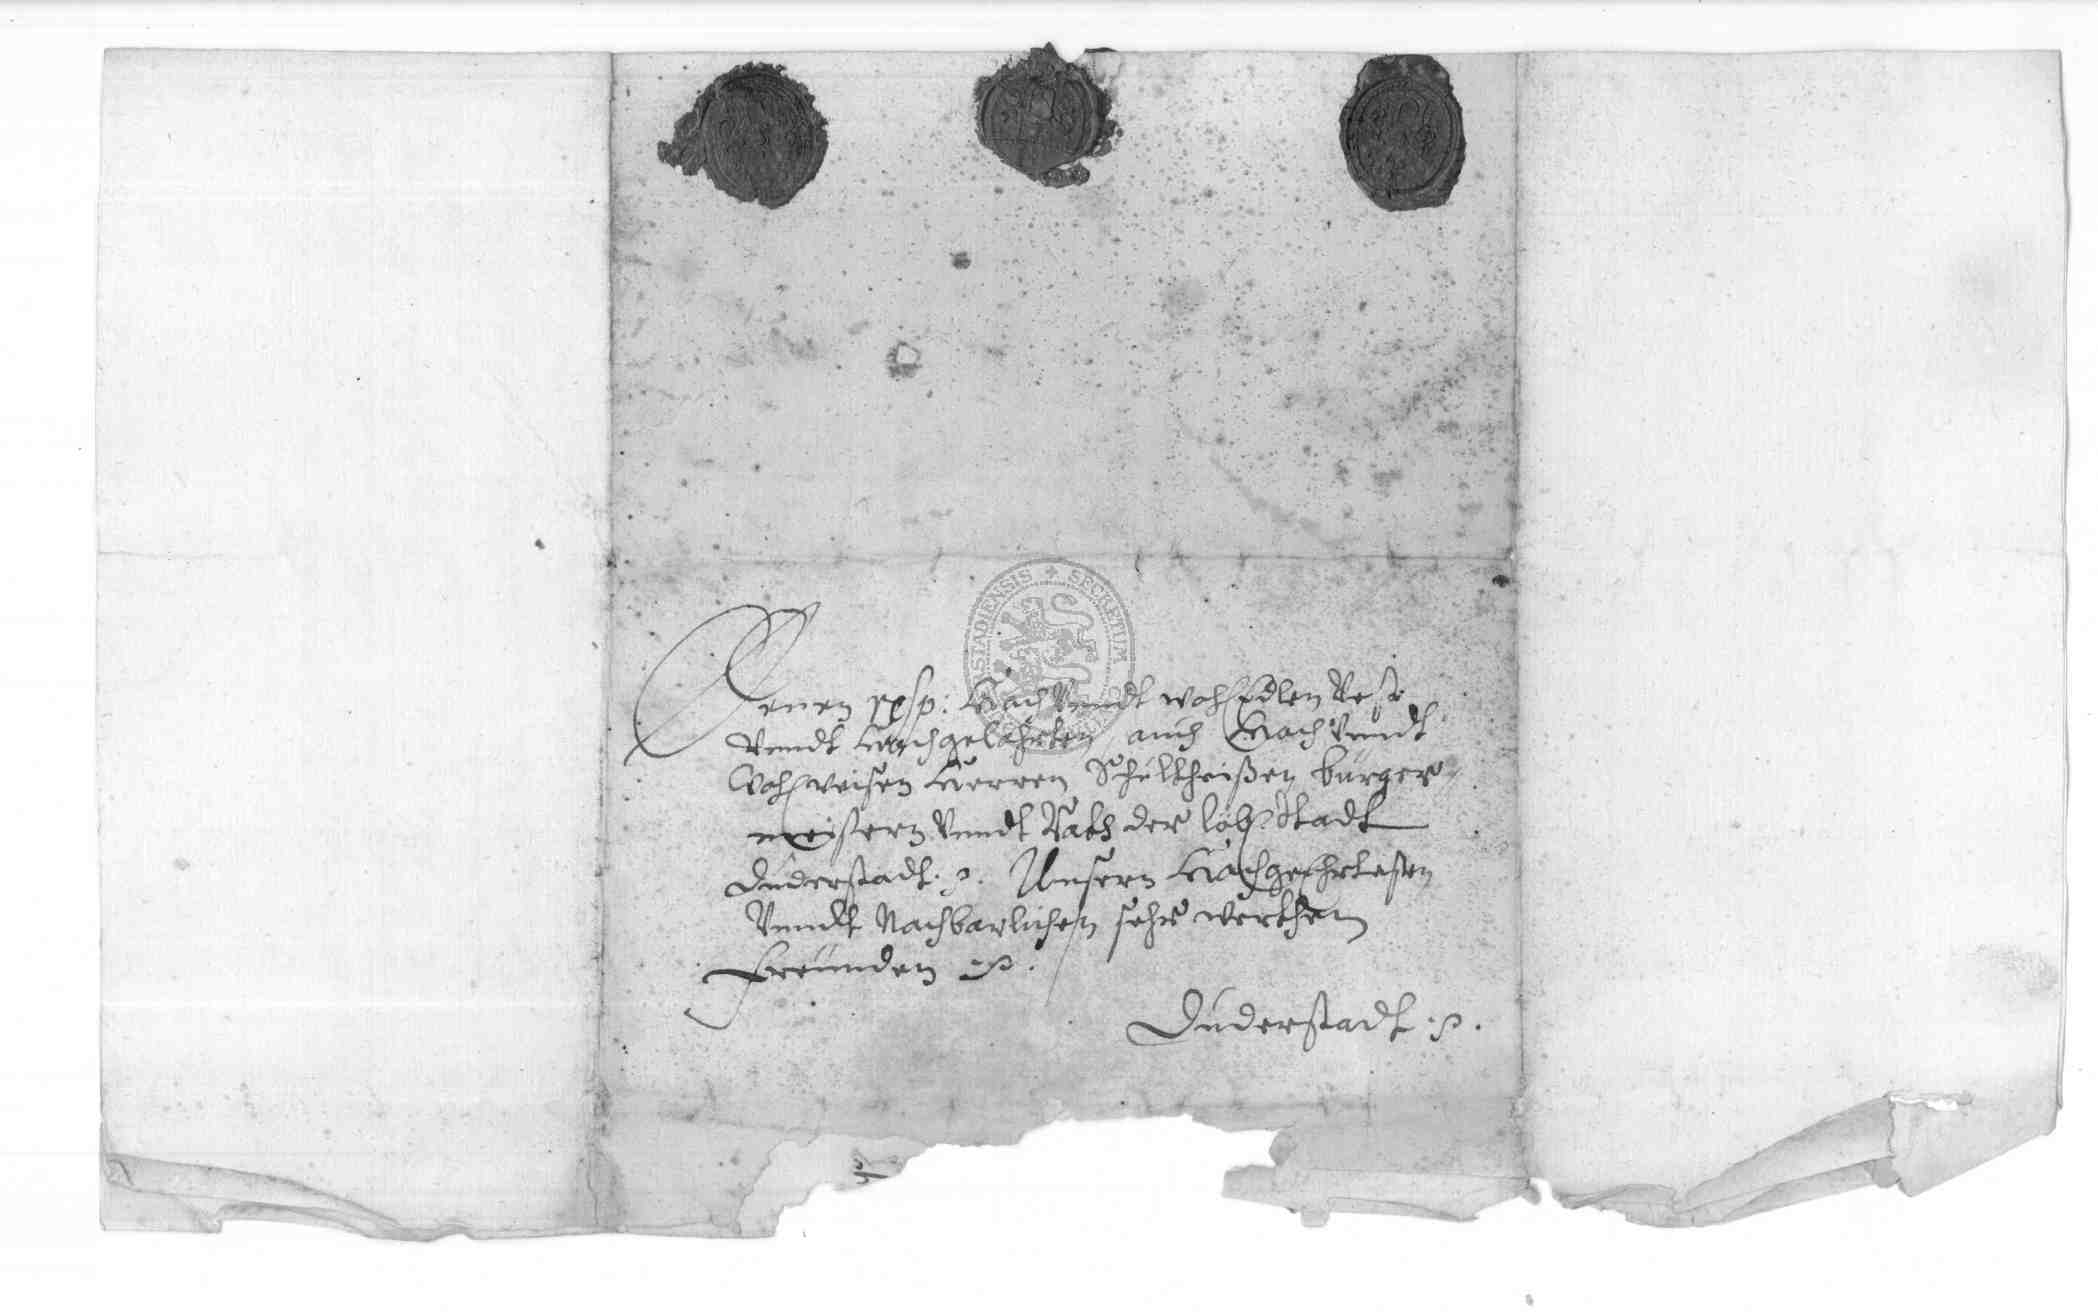 SECRETUM
STADIENSIS
Denen resp: HochVundt wohlEdlen Vest
Vnndt hochgelahrten auch HochVundt
Wohlweisen Herren Schultheißen bürger-
meistern Vnndt Rath der löbl. Stadt
Duderstadt. p. Unsern Hochgeehrtesten
Vnndt Nachbarlichen sehr werthen
Freünden p.
Duderstadt p.